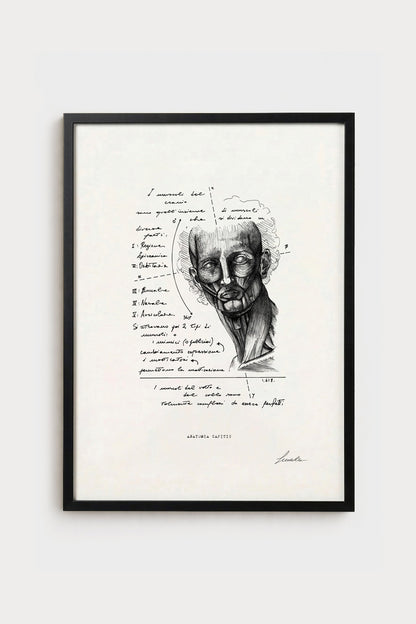 I muscoli del
cranio
sono quell'insieme di muscoli
che si dividono in
diverse
parti:
I: Regione
Epicranica
II: Orbitaria
III: Boccale
IV: Nasale
V: Auricolare
Si trovano poi 2 tipi di
muscoli: o
i mimici (o pellicciai)
cambiamento espressione
o masticatori
permettono la masticazione
I muscoli del volto e
del collo sono
talmente complessi da essere perfetti.
ANATOMIA CAPITIS